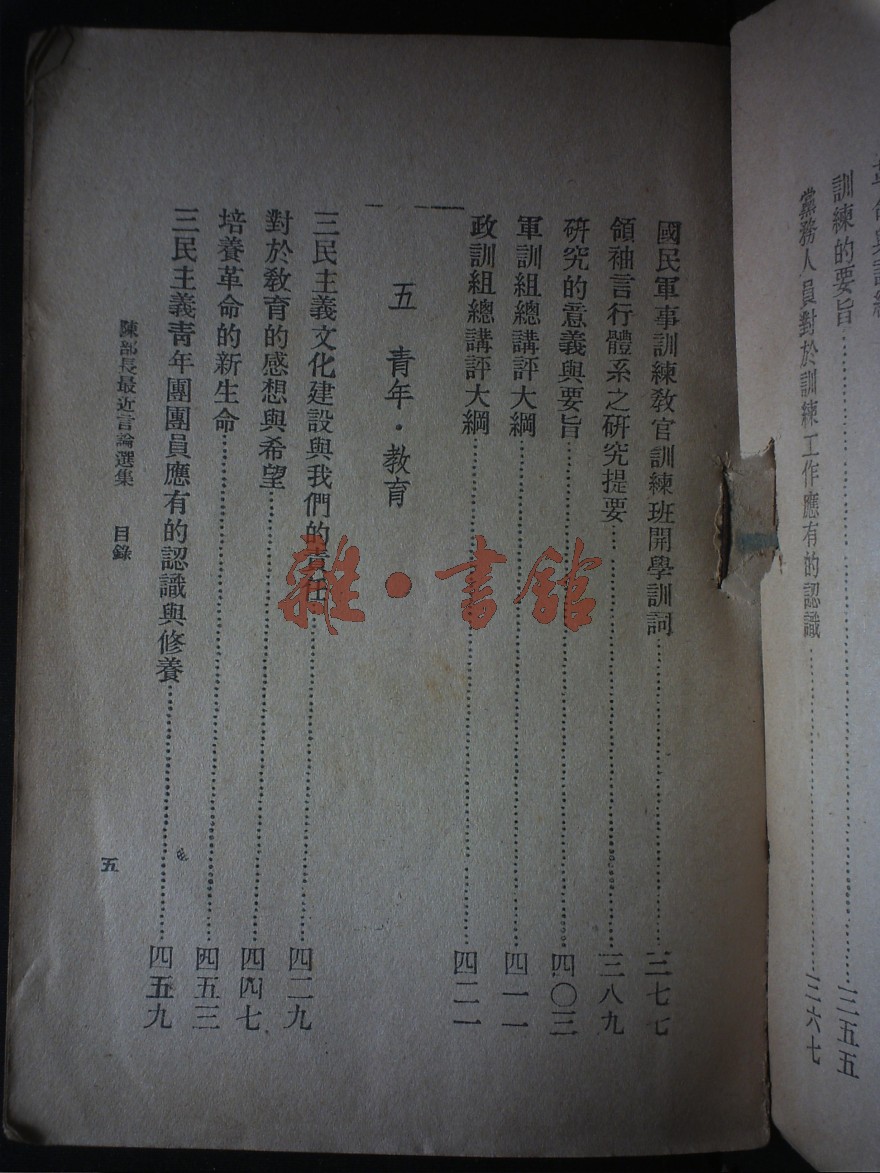 訓練的要旨……三五五
黨務人員對於訓練工作應有的認識……三六七
國民軍事訓練教官訓練班開學訓詞……三七七
領袖言行體系之研究提要……三八九
研究的意義與要旨……四〇三
軍訓組總講評大綱……四一一
政訓組總講評大綱……四二一
五 青年·教育
三民主義文化建設與我們的責任……四二九
對於教育的感想與希望……四四七
培養革命的新生命……四五三
三民主義青年團團員應有的認識與修養……四五九
陳部長最近言論選集 目錄
五
雜·書館